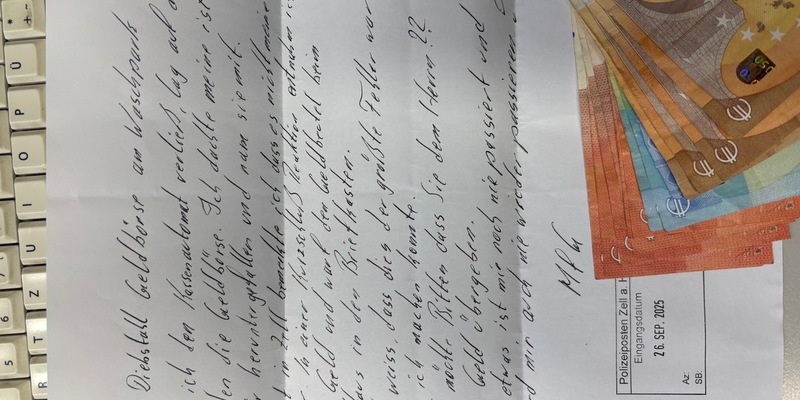 Diebstahl Geldbörse am Waschpark
ich den Kassenautomat verließ, lag auf
die Geldbörse. Ich dachte meine ist
heruntergefallen und nam sie mit.
in Zell bemerkte ich dass es nicht meine
in einer Kurzschluß Reaktion entnahm
Geld und warf den Geldbeutel beim
aus in den Briefkasten.
weiss dass dies der größte Fehler war
ich machen konnte.
möchte Bitten dass Sie dem Herrn ??
Geld übergeben.
etwas ist mir noch nie passiert und
mir auch nie wieder passieren
MfG
Polizeiposten Zell a. H
Eingangsdatum
26. SEP. 2025
Az:
SB:
R T Z U I O P Ü
5 6